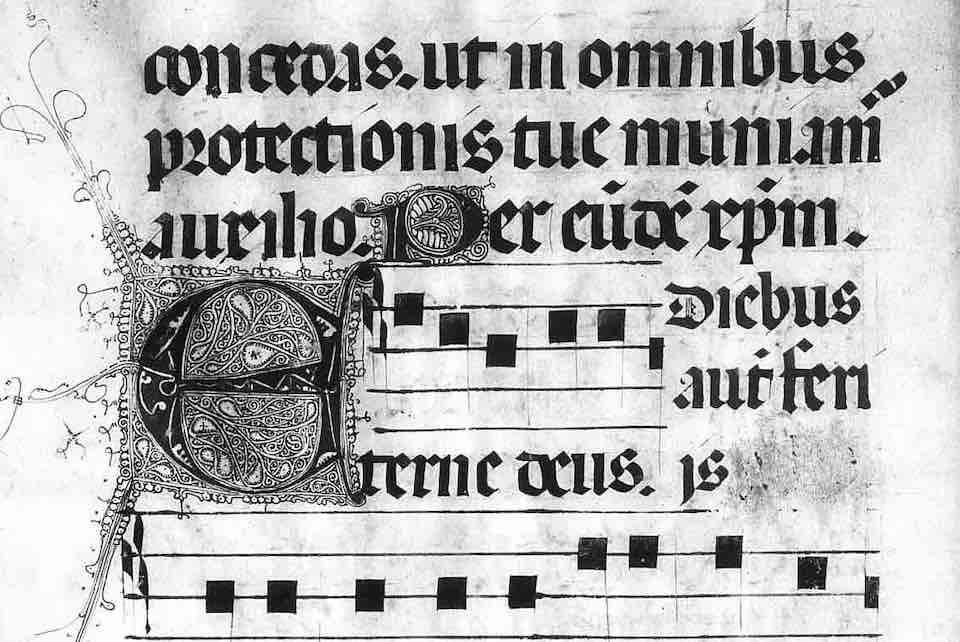 concedas. ut in omnibus
protectionis tue muniam̄
auxilio. Per eūdē xp̄m.
Diebus
aut̄ feri
Eterne deus. js